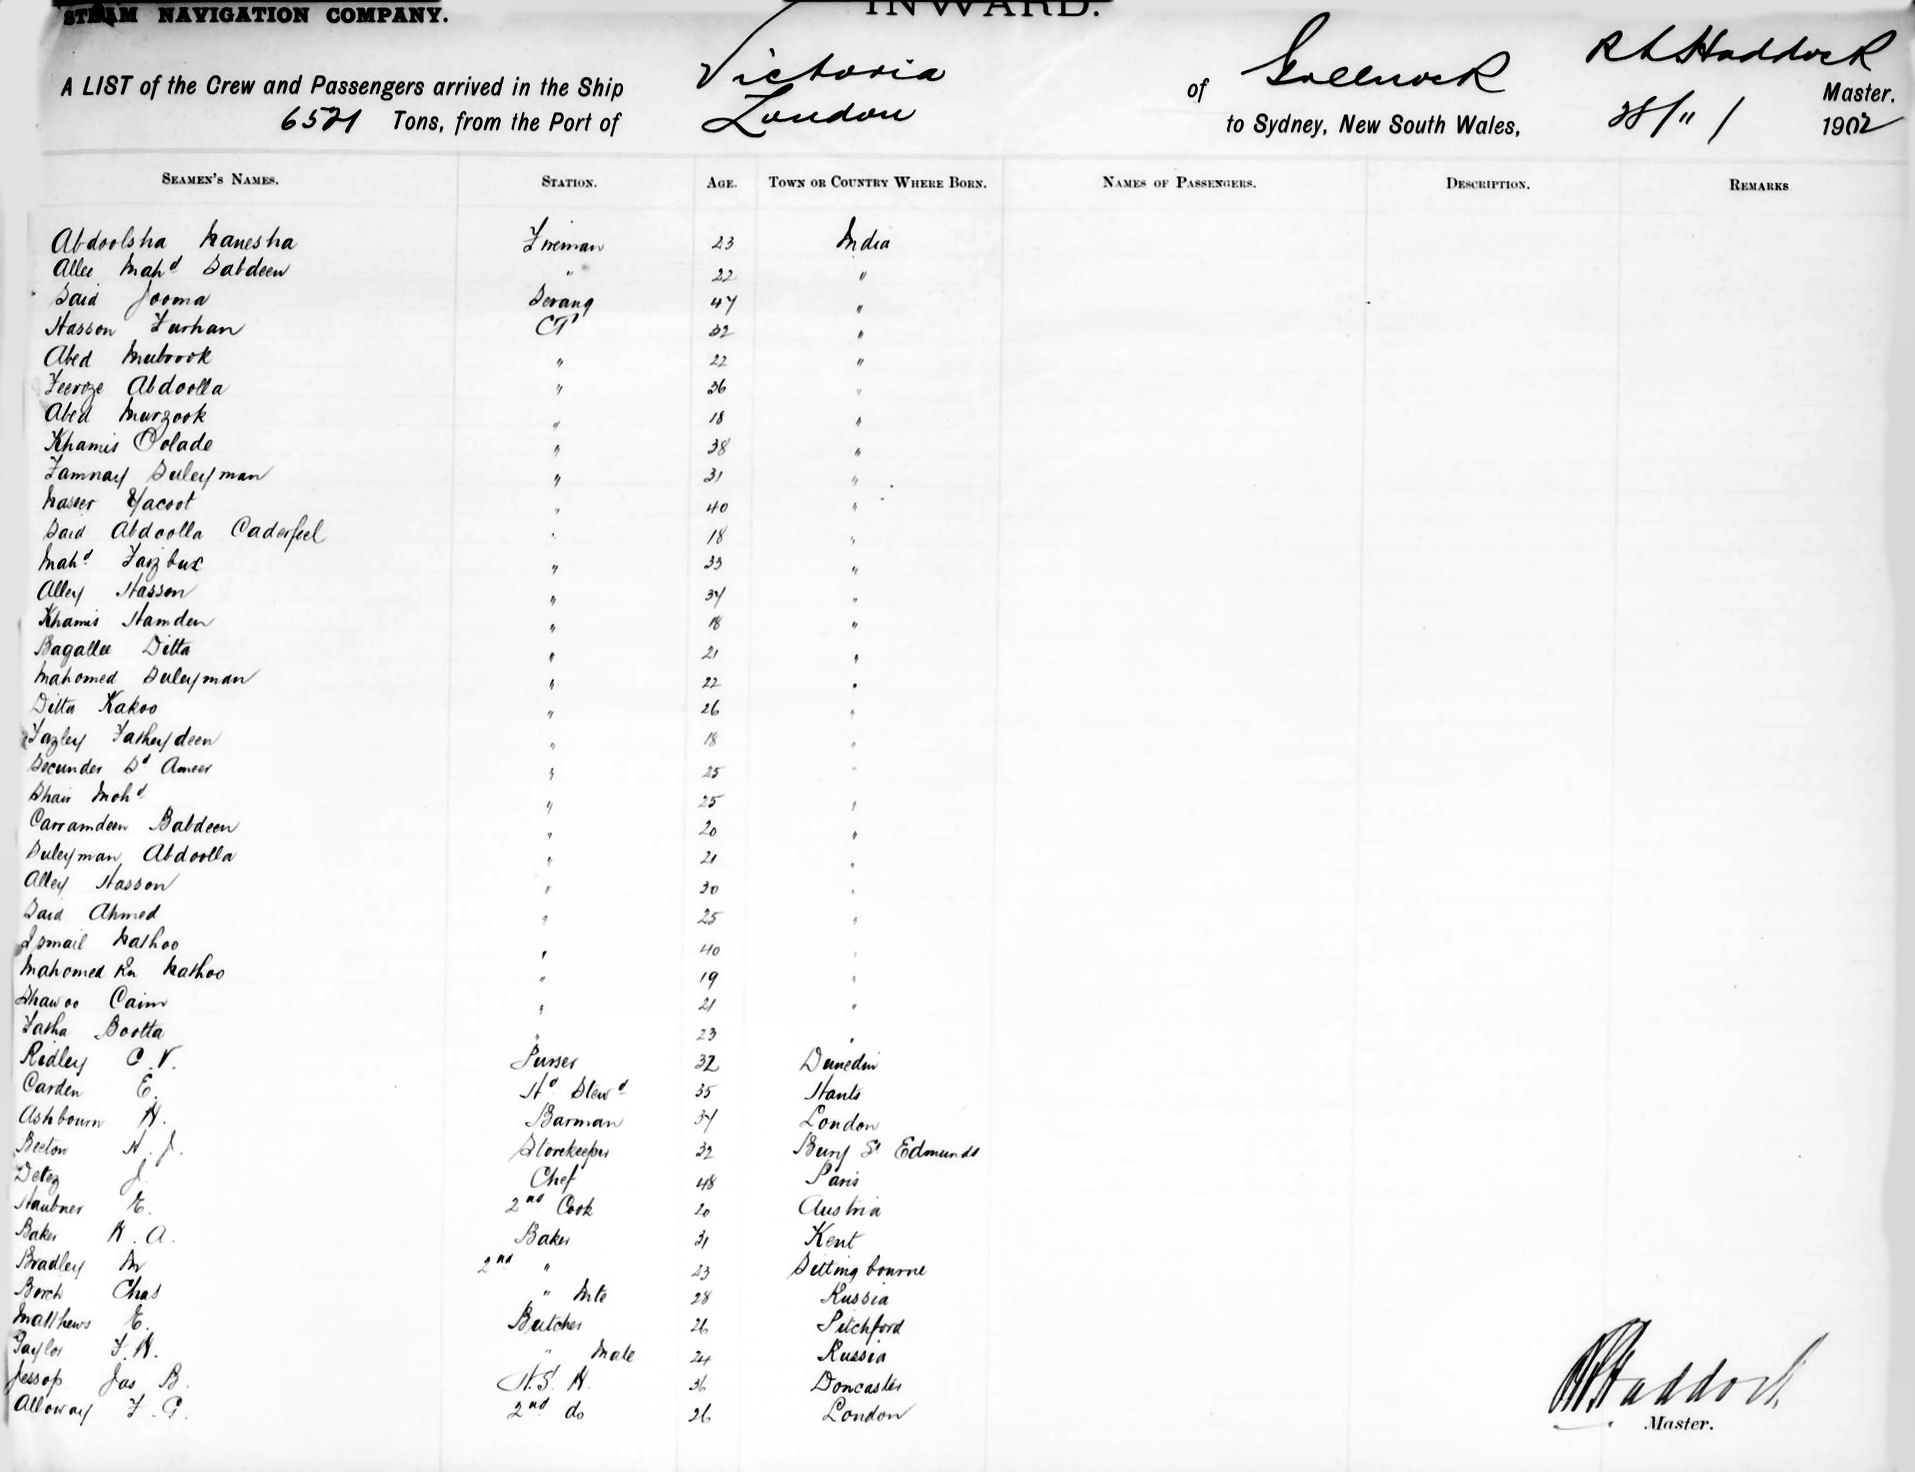 STEAM NAVIGATION COMPANY.
INWARD.
A LIST of the Crew and Passengers arrived in the Ship Victoria of Greenock R L Haddock Master.
6521 Tons, from the Port of London to Sydney, New South Wales, 28/11/ 1902
SEAMEN'S NAMES. STATION. AGE. TOWN OR COUNTRY WHERE BORN. NAMES OF PASSENGERS. DESCRIPTION. REMARKS
Abdoolsha Nanesha Fireman 23 India
Allee Mahd Sabdeen " 22 "
Said Jooma Serang 47 "
Hasson Furhan CT 32 "
Abed Mubrook " 22 "
Feeroze Abdoolla " 36 "
Abed Murzook " 18 "
Khamis Oolade " 38 "
Famnay Suleyman " 31 "
Nasser Yacoot " 40 "
Said Abdoolla Caderfeel " 18 "
Mahd Faizbux " 33 "
Alley Hasson " 34 "
Khamis Hamden " 18 "
Bagallee Ditta " 21 "
Mahomed Suleyman " 22 "
Ditta Kakoo " 26 "
Fazley Fatheydeen " 18 "
Secunder Sd Ameer " 25 "
Shair Mohd " 25 "
Carramdeen Babdeen " 20 "
Suleyman Abdoolla " 21 "
Alley Hasson " 30 "
Said Ahmed " 25 "
Ismail Nathoo " 40 "
Mahomed Kn Nathoo " 19 "
Shawoo Caim " 21 "
Fatha Bootta " 23 "
Ridley C. V. Purser 32 Dunedin
Carden E. Hd Stewd 35 Hants
Ashbourn H. Barman 34 London
Beeton H. J. Storekeeper 32 Bury St Edmunds
Detez J. Chef 48 Paris
Haubner E. 2nd Cook 20 Austria
Baker H. A. Baker 31 Kent
Bradley M 2nd " 23 Sittingbourne
Borch Chas " Mte 28 Russia
Matthews E. Butcher 26 Pitchford
Taylor F. H. " Mate 24 Russia
Jessop Jas B. H. S. K. 36 Doncaster
Alloway F. G. 2nd do 26 London
R L Haddock
Master.